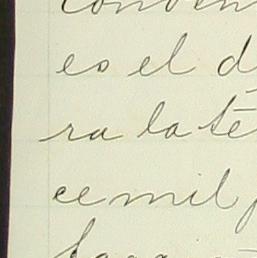 conven
es el d
ra la té
ce mil p